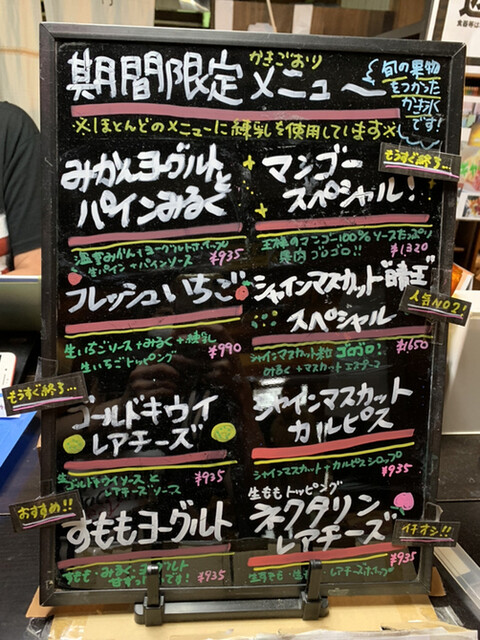 期間限定 かきごおり メニュー
旬の果物
をつかった
かき氷
です!
※ほとんどのメニューに練乳を使用しています※
みかんヨーグルトと
パインみるく
温室みかん+ヨーグルトホイップ
生パイン+パインソース
¥935
もうすぐ終了…
マンゴー
スペシャル!
王様のマンゴー100%ソースたっぷり
果肉ゴロゴロ!!
¥1,320
フレッシュいちご
生いちごソース+みるく+練乳
生いちごトッピング
¥990
シャインマスカット"晴王"
スペシャル
人気NO2!
シャインマスカット粒ゴロゴロ!
みるく+マスカットエスプーマ
¥1650
もうすぐ終了…
ゴールドキウイ
レアチーズ
生ゴールドキウイソースと
レアチーズソース
¥935
シャインマスカット
カルピス
シャインマスカット+カルピスシロップ
¥935
おすすめ!!
すももヨーグルト
すもも・みるく・ヨーグルト
です!
¥935
生ももトッピング
ネクタリン
レアチーズ
イチオシ!!
レアチーズホイップ
¥935